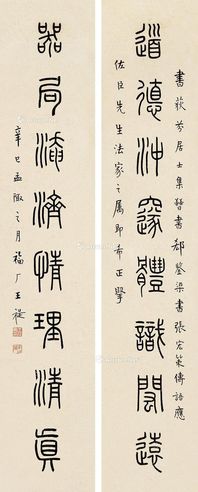 道德沖邃體識閎遠
書荻芬居士集晉書郗鑒梁書張宏策傳語應
佐臣先生法家之属即希正掔
器局淹濟情理清真
辛巳孟陬之月福厂王禔